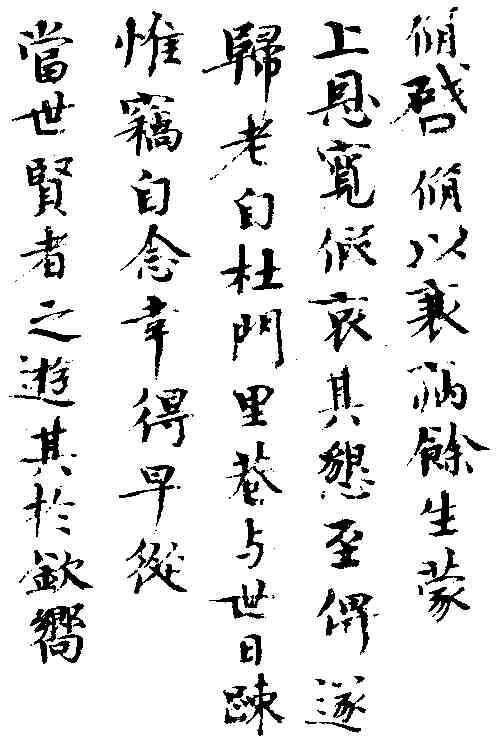 脩啓脩以衰病餘生蒙
上恩寬假哀其懇至俾遂
歸老自杜門里巷与世日踈
惟竊自念幸得早從
當世賢者之遊其於欽嚮